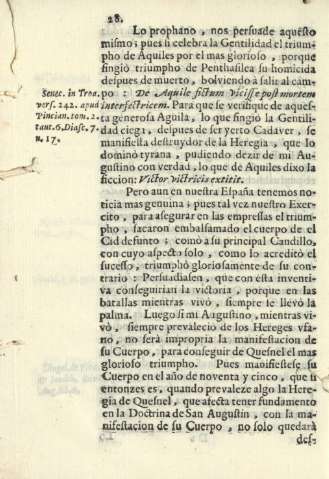 28.
Lo prophano, nos persuade aquesto
mismo; pues si celebra la Gentilidad el trium-
pho de Aquiles por el mas glorioso, porque
fingiò triumpho de Penthasilea su homicida
despues de muerto, bolviendo à salir al cam-
po: De Aquile fictum vicisse post mortem
interfectricem. Para que se verifique de aques-
ta generosa Aguila, lo que fingiò la Gentili-
dad ciega; despues de ser yerto Cadaver, se
manifiesta destruydor de la Heregia, que lo
dominò tyrana, pudiendo dezir de mi Au-
gustino con verdad, lo que de Aquiles dixo la
ficcion: Victor victricis extitit.
Senec. in Troa.
vers. 242. apud
Pincian. tom. 2.
taut. 6. Diasc. 7.
n. 17.
Pero aun en nuestra España tenemos no-
ticia mas genuina; pues tal vez nuestro Exer-
cito, para asegurar en las empressas el trium-
pho, sacaron embalsamado el cuerpo de el
Cid defunto; como à su principal Caudillo,
con cuyo aspecto solo, como lo acreditò el
sucesso, triumphò gloriosamente de su con-
trario: Persuadiasen, que con esta inventi-
va conseguirian la victoria, porque en las
batallas mientras vivò, siempre se llevò la
palma. Luego si mi Augustino, mientras vi-
vò, siempre prevaleciò de los Hereges vfa-
no, no serà impropria la manifestacion de
su Cuerpo, para conseguir de Quesnel el mas
glorioso triumpho. Pues manifiestese su
Cuerpo en el año de noventa y cinco, que
entonzes es, quando prevaleze algo la Here-
gia de Quesnel, que afecta tener fundamento
en la Doctrina de San Augustin, con la ma-
nifestacion de su Cuerpo, no solo quedarà
des-